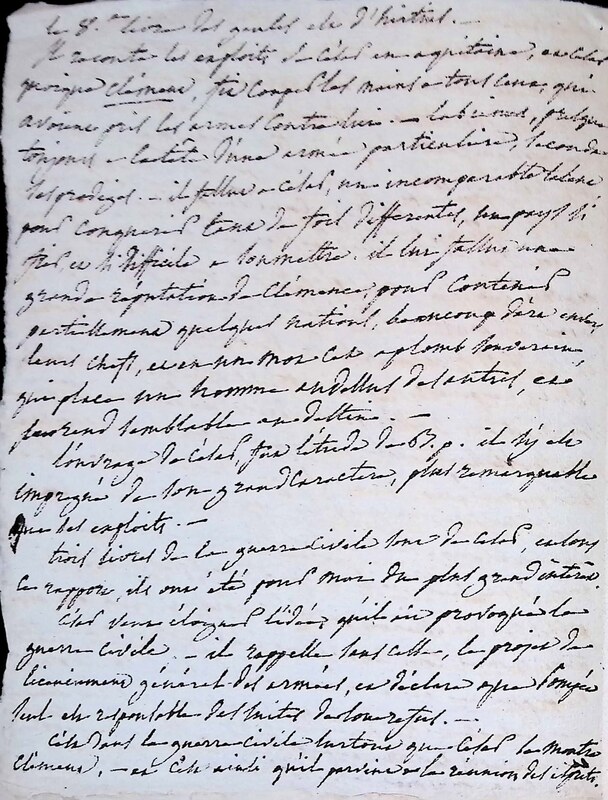 le 8.me livre des gaules est d'hirtius. —
Il raconte les exploits de César en aquitaine, et César
quoique clément, fit couper les mains a tous ceux, qui
avoient pris les armes contre lui. — labienus, presque
toujours a la tête d'une armée particulière, seconda
les prodiges. — il fallut a César, un incomparable talent
pour conquérir tant de fois differentes, un pays si
fier, et si difficile a soumettre. il lui fallut une
grande réputation de Clémence, pour contenir
partiellement quelques nations, beaucoup d'art entre
leurs chefs, et en un mot cet aplomb souverain,
qui place un homme au dessus des autres, et
le rend semblable au destin. —
l'ouvrage de César, fut l'étude de B. p. il s'y est
impregné de son grand caractère, plus remarquable
que ses exploits. —
trois livres de la guerre civile sont de César, et sous
ce rapport, ils ont été pour moi du plus grand intérêt.
César veut éloigner l'idée, qu'il ait provoqué la
guerre civile. — il rappelle sans cesse, le projet de
licenciement général des armées, et déclare que Pompée
seul est responsable des suites de son refus. —
C'est dans la guerre civile surtout que César se montre
Clément, — et c'est ainsi qu'il parvint a la réunion des esprits.